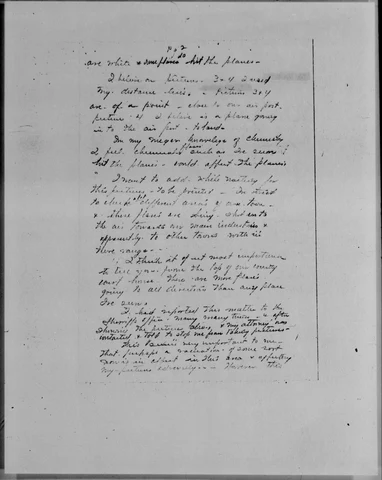 P. 2
are white & some planes do hit the planes -
I believe on pictures - 3 & 4 I used
my distance lens - Picture 3 & 4
are of a point - close to our air port -
picture - 4 I believe is a plane going
in to the air port - to land -
In my meger knowlege of chemistry
I feel chemicals such as we saw
hit the planes - could affect the planes
I want to add while waiting for
this picture - to be printed - I
to check different areas of our town -
& these planes are
the air towards our main
& apparently to other towns within
here range -
I think it of utmost importance
to tell you - from the top of our county
court house there are more planes
going in all directions than any place
I've seen.
I had reported this matter to the
Sheriff's office - many many times - & after
showing the pictures & my attorney was
contacted & told to stop me from taking pictures
this seems very important to me -
that perhaps a radiation of some sort
in effect in this area & affecting
my pictures - However this